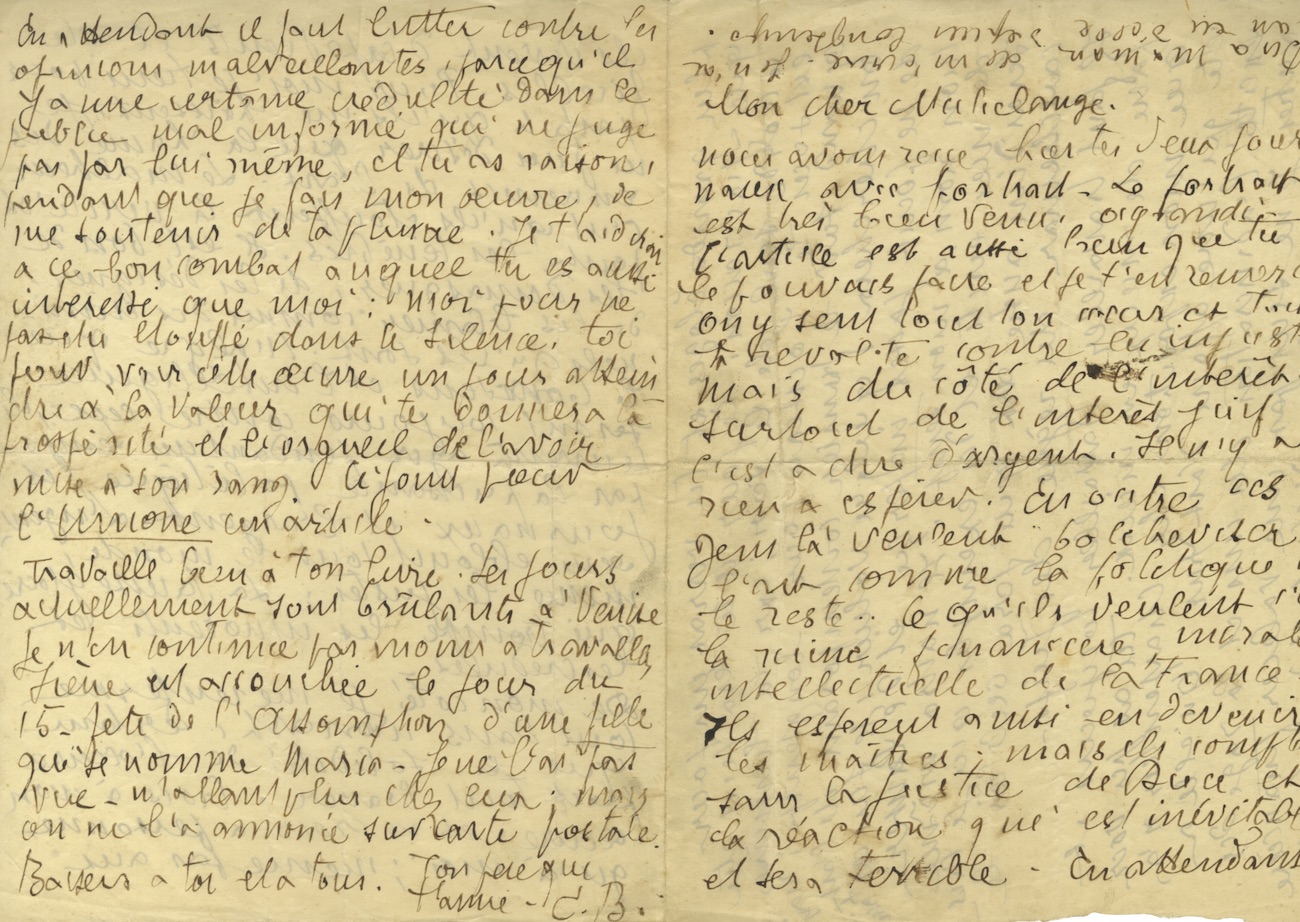 Mon cher Michelange.
nous avons reçu hier tes deux jour
naux avec portrait - Le portrait
est très bien venu. agrandi
l'article est aussi bien que tu
le pouvais faire et je t'en remerc
on y sent tout ton cœur et ta
révolte contre les injust
mais du côté de l'intérêt
surtout de l'intérêt juif
c'est a dire d'argent. Il n'y a
rien a espérer. En outre ces
gens là veulent bolcheviser
l'art comme la politique
le reste.. Ce qu'ils veulent c'
la ruine financière, morale
intellectuelle de la France -
Ils esperent ainsi en devenir
les maîtres ; mais ils compt
sans la justice de Dieu et
la réaction qui est inévitable
et sera terrible - En attendant
En attendant il faut lutter contre les
opinions malveillantes, parcequ'il
y a une certaine crédulité dans le
public mal informé qui ne juge
pas par lui même, et tu as raison,
pendant que je fais mon œuvre, de
me soutenir de ta plume. Je t'aiderai
a ce bon combat auquel tu es aussi
interessé que moi : moi pour ne
pas être étouffé dans le silence. toi
pour voir cette œuvre un jour attein
dre à la valeur qui te donnera la
prospérité et l'orgueil de l'avoir
mise à son rang. Ci joint pour
l'Unione un article -
Travaille bien à ton livre. Les jours
actuellement sont brûlants à Venise
Je n'en continue pas moins a travailler
Irène est accouchée le jour du
15 - fete de l'Assomption d'une fille
qui se nomme Maria - Je ne l'ai pas
vue - n'allant plus chez eux ; mais
on me l'a annoncé sur carte postale.
Baisers a toi et a tous. Ton père qui
t'aime - E. B.